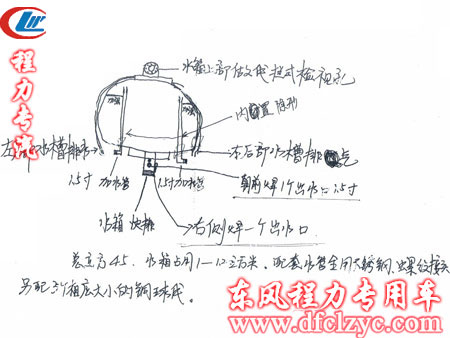 程力专汽
水箱上部做文便拉式检视孔
加强
加强
内置隐形
左
水槽排
右后部水槽排
1.5寸 加水管
1.5寸加水管
朝前焊1个出水口1.5寸
水箱 快排
右侧焊一个出水口
总立方45. 水箱占用1—12立方米. 配套水管全用不锈钢、螺纹接头
另配3个相应大小的铜球阀.
东风程力专用车
www.dfclzyc.com